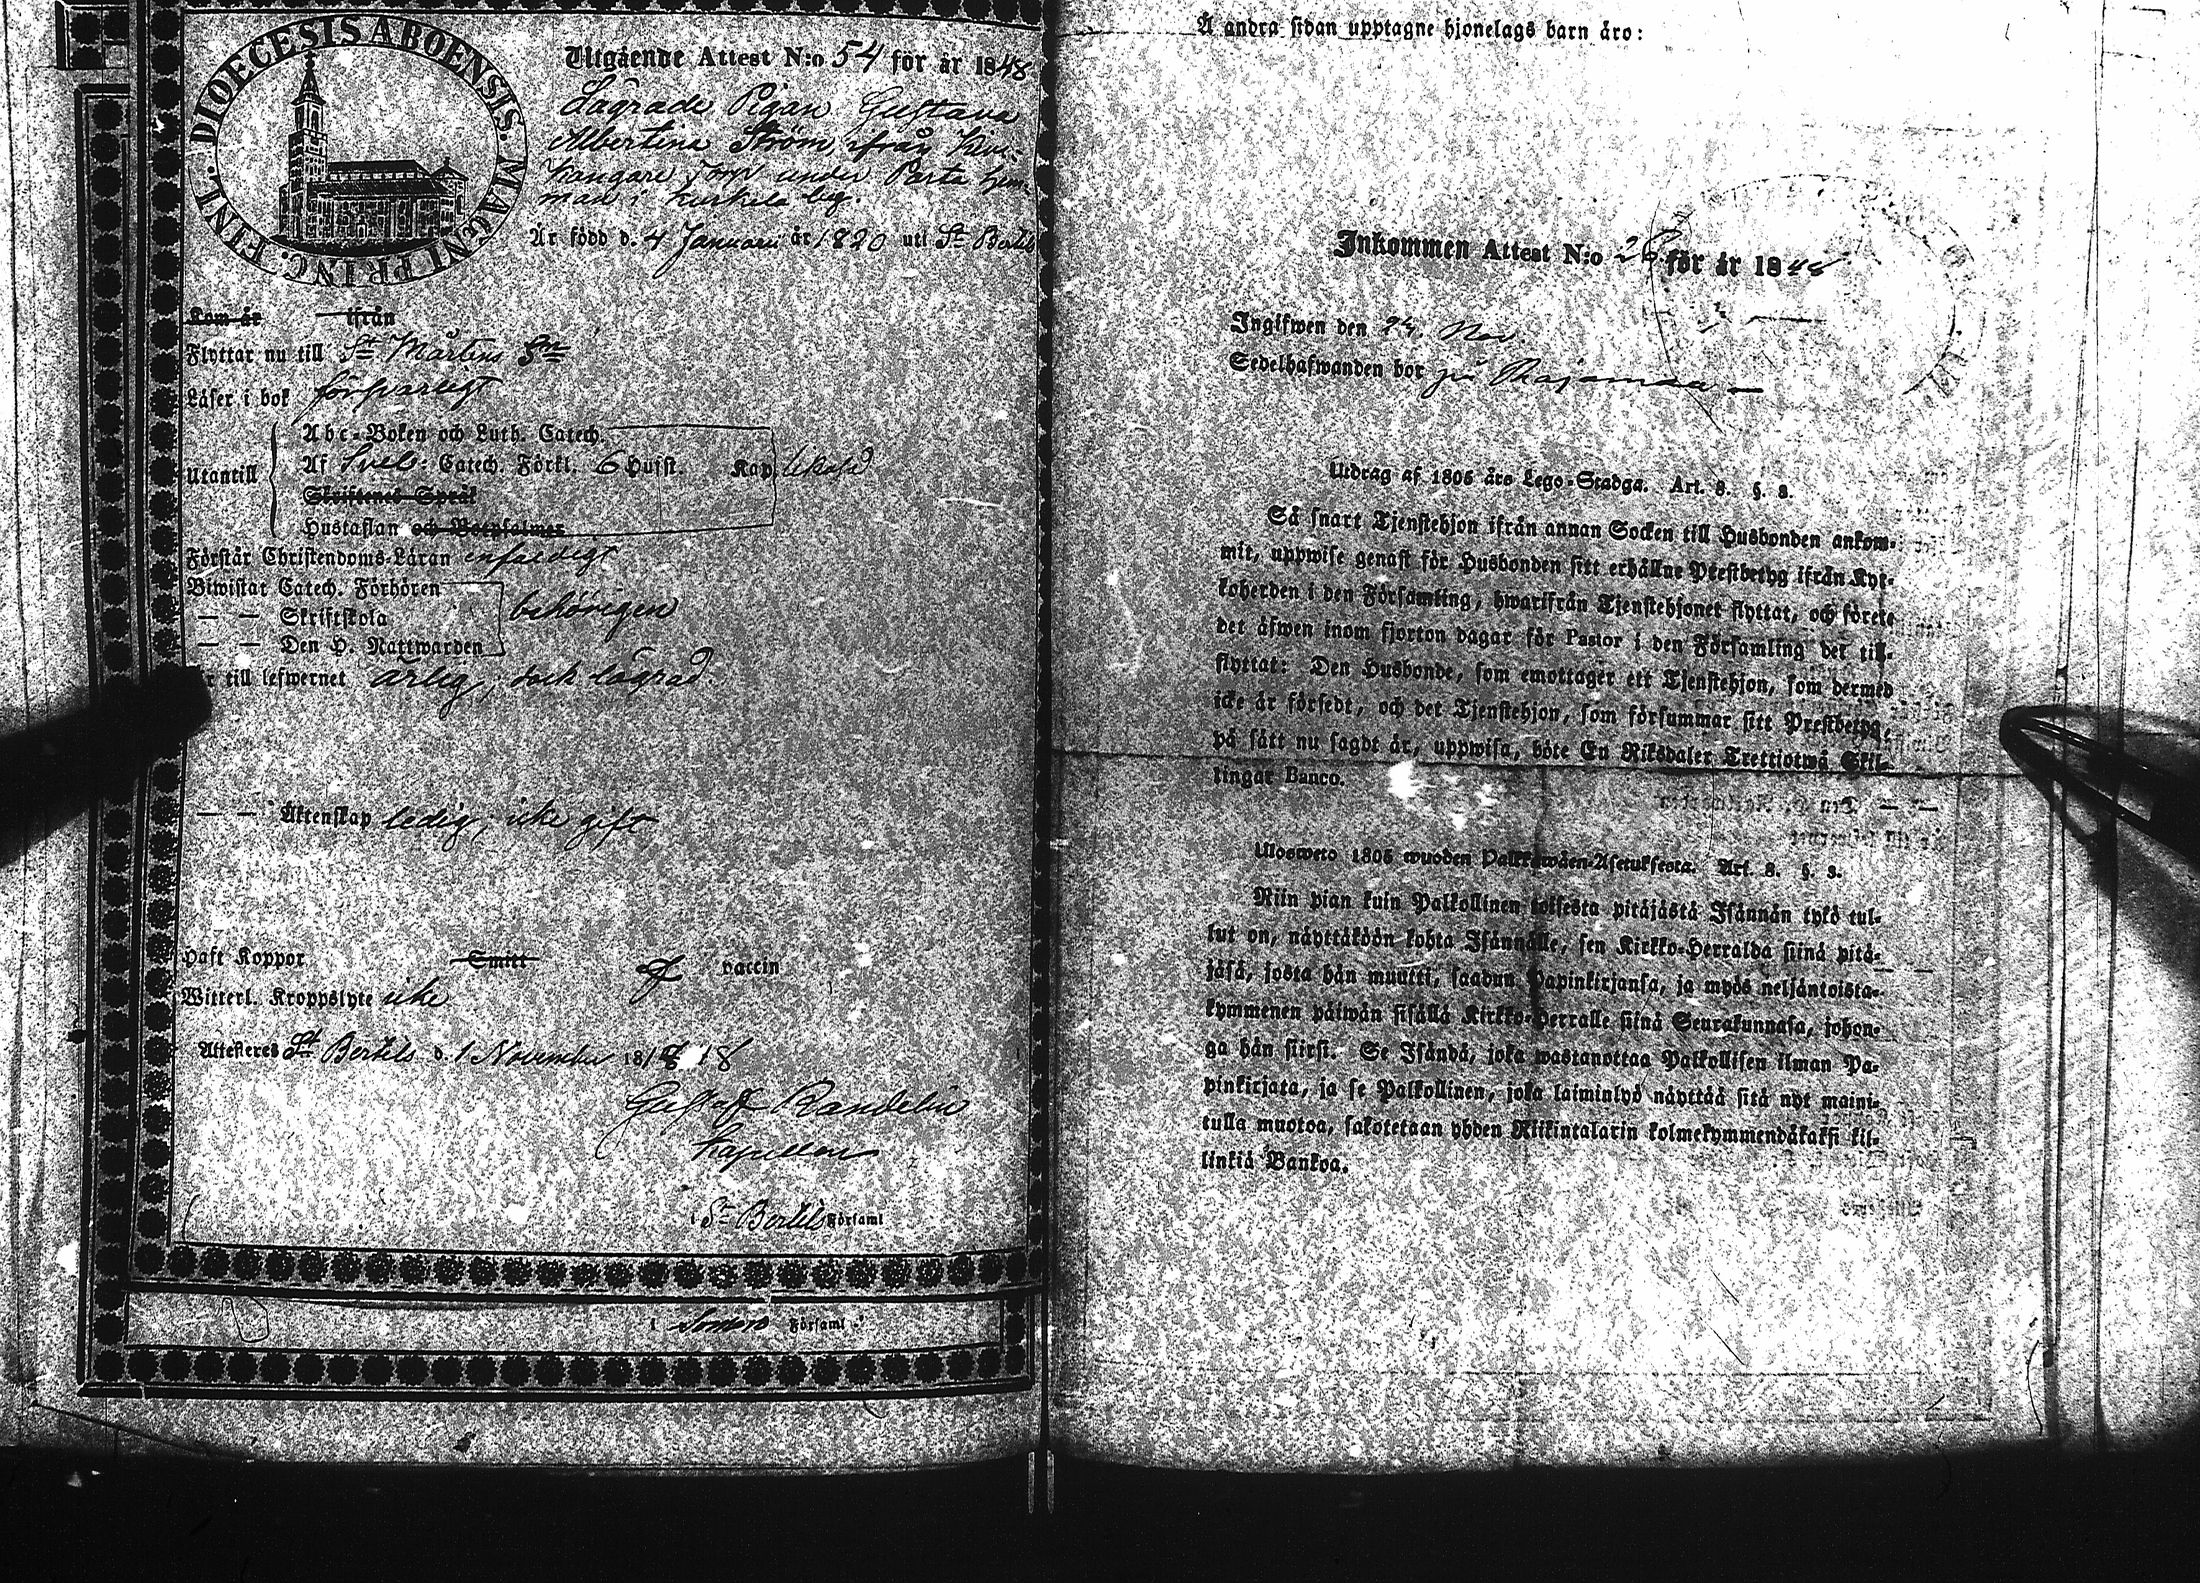 DIOECESIS ABOENSIS. MAGNI PRINC. FINL.
Utgående Attest N:o 54 för år 1848
Lägrade Pigan Gustava
Albertina Ström, ifrån
Kangare Torp under Parta Hem-
man i Kurkela by.
Är född d. 4 Januarii år 1820 uti St Bertils
Kom år ifrån
Flyttar nu till St Mårtens Sn
Läser i bok försvarligt
Utantill
Abc-Boken och Luth. Catech.
Af Sveb: Catech. Förkl. 6 Hufst. Kap.
Skriftenes Språk
Hustaflan och Botpsalmer
Förstår Christendoms-Läran enfaldigt
Biwistat Catech. Förhören
— — Skriftskola behörigen
— — Den H. Nattwarden
Är till lefwernet ärlig, dock lägrad.
— — Äktenskap ledig, icke gift
Haft Koppor Smitt af vaccin
Witterl. Kroppslyte icke
Attesteres St Bertils d. 1 November 1848
Gustaf Randelin
Kapellan
i St Bertils Församl
i Somero Församl.
Å andra sidan upptagne hjonelags barn äro:
Inkommen Attest N:o 26 för år 1848
Ingifwen den 24 Nov.
Sedelhafwanden bor på Rajamaa —
Utdrag af 1805 års Lego-Stadga. Art. 8. §. 8.
Så snart Tjenstehjon ifrån annan Socken till Husbonden ankom-
mit, uppwise genast för Husbonden sitt erhållne Prestbetyg ifrån Kyr-
koherden i den Församling, hwarifrån Tjenstehjonet flyttat, och förete
det äfwen inom fjorton dagar för Pastor i den Församling det till-
flyttat: Den Husbonde, som emottager ett Tjenstehjon, som dermed
icke är försedt, och det Tjenstehjon, som försummar sitt Prestbetyg,
på sätt nu sagdt är, uppwisa, böte En Riksdaler Trettiotwå Skil-
lingar Banco.
Uloswето 1805 wuoden Palkkawäen-Asetuksesta. Art. 8. §. 8.
Niin pian kuin Palkollinen toisesta pitäjästä Isännän tykö tul-
lut on, näyttäköön kohta Isännälle, sen Kirkko-Herralda siinä pitä-
jäsä, josta hän muutti, saadun Papinkirjansa, ja myös neljäntoista-
kymmenen päiwän sisällä Kirkko-Herralle siinä Seurakunnasa, johon-
ga hän siirsi. Se Isändä, joka wastanottaa Palkollisen ilman Pa-
pinkirjata, ja se Palkollinen, joka laiminlyö näyttää sitä nyt maini-
tulla muotoa, sakotetaan yhden Riikintalarin kolmekymmendäkaksi kil-
linkiä Bankoa.